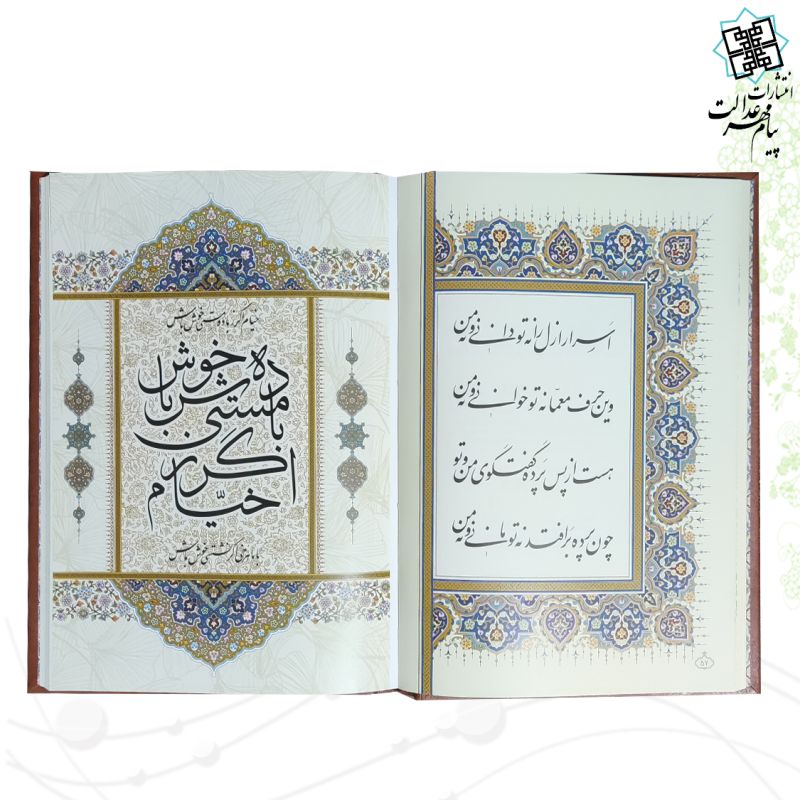 انتشارات
پیام مهر عدالت
اسرار ازل را نه تو دانی و نه من
وین حرف معما نه تو خوانی و نه من
هست از پس پرده گفتگوی من و تو
چون پرده برافتد نه تو مانی و نه من
۵۷
خیام اگر ز باده مستی خوش باش
خیام اگر ز باده مستی خوش باش
با ماهرخی اگر نشستی خوش باش